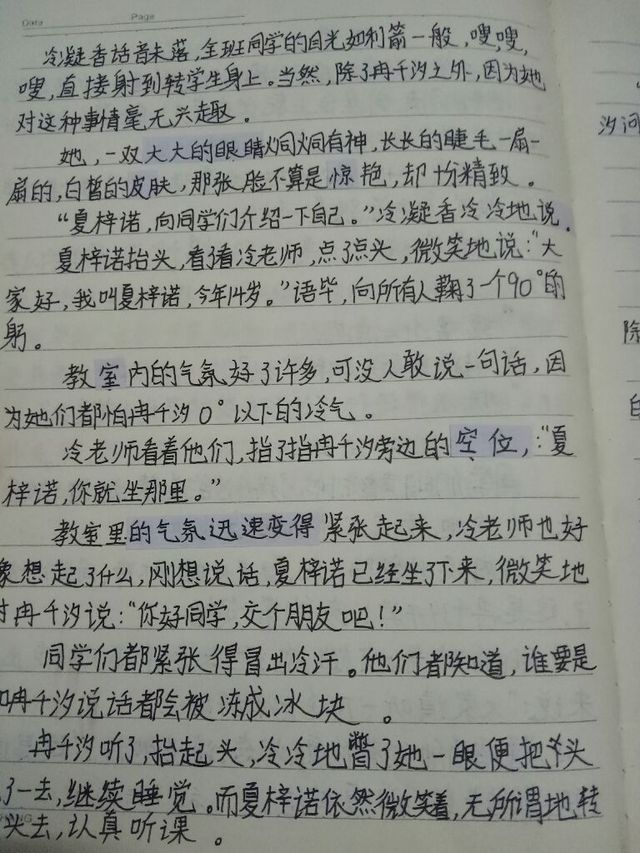 Data Page
冷凝香话音未落,全班同学的目光如利箭一般,嗖,嗖,
嗖,直接射到转学生身上。当然,除了冉千汐之外,因为她
对这种事情毫无兴趣。
她,一双大大的眼睛炯炯有神,长长的睫毛一扇一
扇的,白皙的皮肤,那张脸不算是惊艳,却十分精致。
“夏梓诺,向同学们介绍一下自己。”冷凝香冷冷地说。
夏梓诺抬头,看了看冷老师,点了点头,微笑地说:“大
家好,我叫夏梓诺,今年14岁。”语毕,向所有人鞠了一个90°的
躬。
教室内的气氛好了许多,可没人敢说一句话,因
为她们都怕冉千汐0°以下的冷气。
冷老师看着他们,指了指冉千汐旁边的空位,:“夏
梓诺,你就坐那里。”
教室里的气氛迅速变得紧张起来,冷老师也好
象想起了什么,刚想说话,夏梓诺已经坐了下来,微笑地
对冉千汐说:“你好同学,交个朋友吧!”
同学们都紧张得冒出冷汗。他们都知道,谁要是
和冉千汐说话都会被冻成冰块。
冉千汐听了,抬起头,冷冷地瞥了她一眼便把头
了一去,继续睡觉。而夏梓诺依然微笑着,无所谓地转
头去,认真听课。
汐问
除